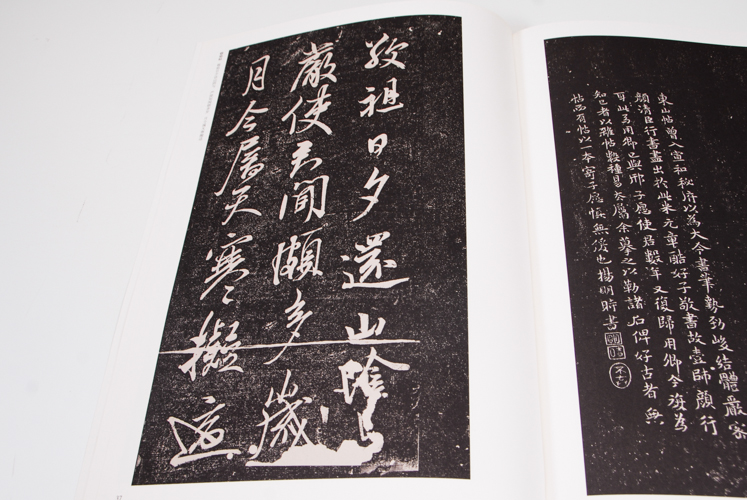 敬祖日夕還山陰與
嚴使君聞頗多歲
月今屬天寒擬適
東山帖曾入宣和秘府以為大令書筆勢勁峻結體嚴密
顏清臣行書盡出於此米元章酷好子敬書故壹師顏行
耳此為用卿已與邢子愿使君數年又復歸用卿今為
知己者以雜帖數種易屬余摹之以勒諸石俾好古者無
帖以一本寄子愿無後也楊明時書